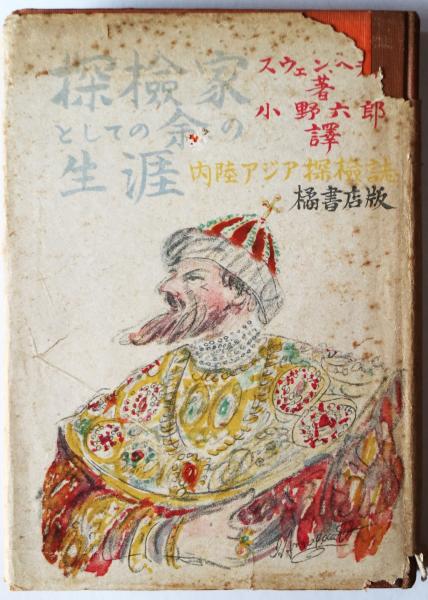 探檢家
としての余の
生涯
スウェンヘ
著
小野六郎
譯
内陸アジア探檢誌
橘書店版